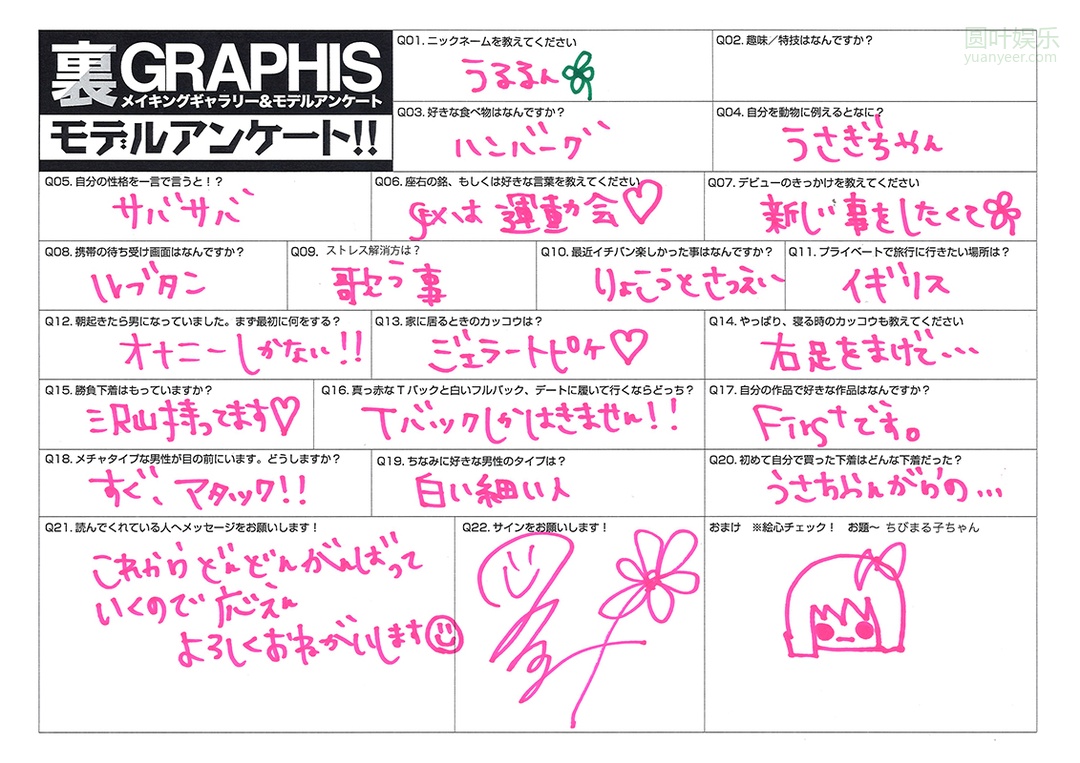 圆叶娱乐
yuanyeer.com
裏GRAPHIS
メイキングギャラリー&モデルアンケート
モデルアンケート!!
Q01. ニックネームを教えてください
うるるん
Q02. 趣味／特技はなんですか？
Q03. 好きな食べ物はなんですか？
ハンバーグ
Q04. 自分を動物に例えるとなに？
うさぎちゃん
Q05. 自分の性格を一言で言うと！？
サバサバ
Q06. 座右の銘、もしくは好きな言葉を教えてください
sexは運動会♡
Q07. デビューのきっかけを教えてください
新しい事をしたくて
Q08. 携帯の待ち受け画面はなんですか？
ルブタン
Q09. ストレス解消方は？
歌う事
Q10. 最近イチバン楽しかった事はなんですか？
りょこうとさつえい
Q11. プライベートで旅行に行きたい場所は？
イギリス
Q12. 朝起きたら男になっていました。まず最初に何をする？
オナニーしかない!!
Q13. 家に居るときのカッコウは？
ジェラートピケ♡
Q14. やっぱり、寝る時のカッコウも教えてください
右足をまげて…
Q15. 勝負下着はもっていますか？
沢山持ってます♡
Q16. 真っ赤なTバックと白いフルバック、デートに履いて行くならどっち？
Tバックしかはきません!!
Q17. 自分の作品で好きな作品はなんですか？
Firstです。
Q18. メチャタイプな男性が目の前にいます。どうしますか？
すぐ、アタック!!
Q19. ちなみに好きな男性のタイプは？
白い細い人
Q20. 初めて自分で買った下着はどんな下着だった？
うさちゃんがらの…
Q21. 読んでくれている人へメッセージをお願いします！
これからどんどんがんばって
いくので応えん
よろしくおねがいします
Q22. サインをお願いします！
おまけ　※絵心チェック！　お題～ ちびまる子ちゃん